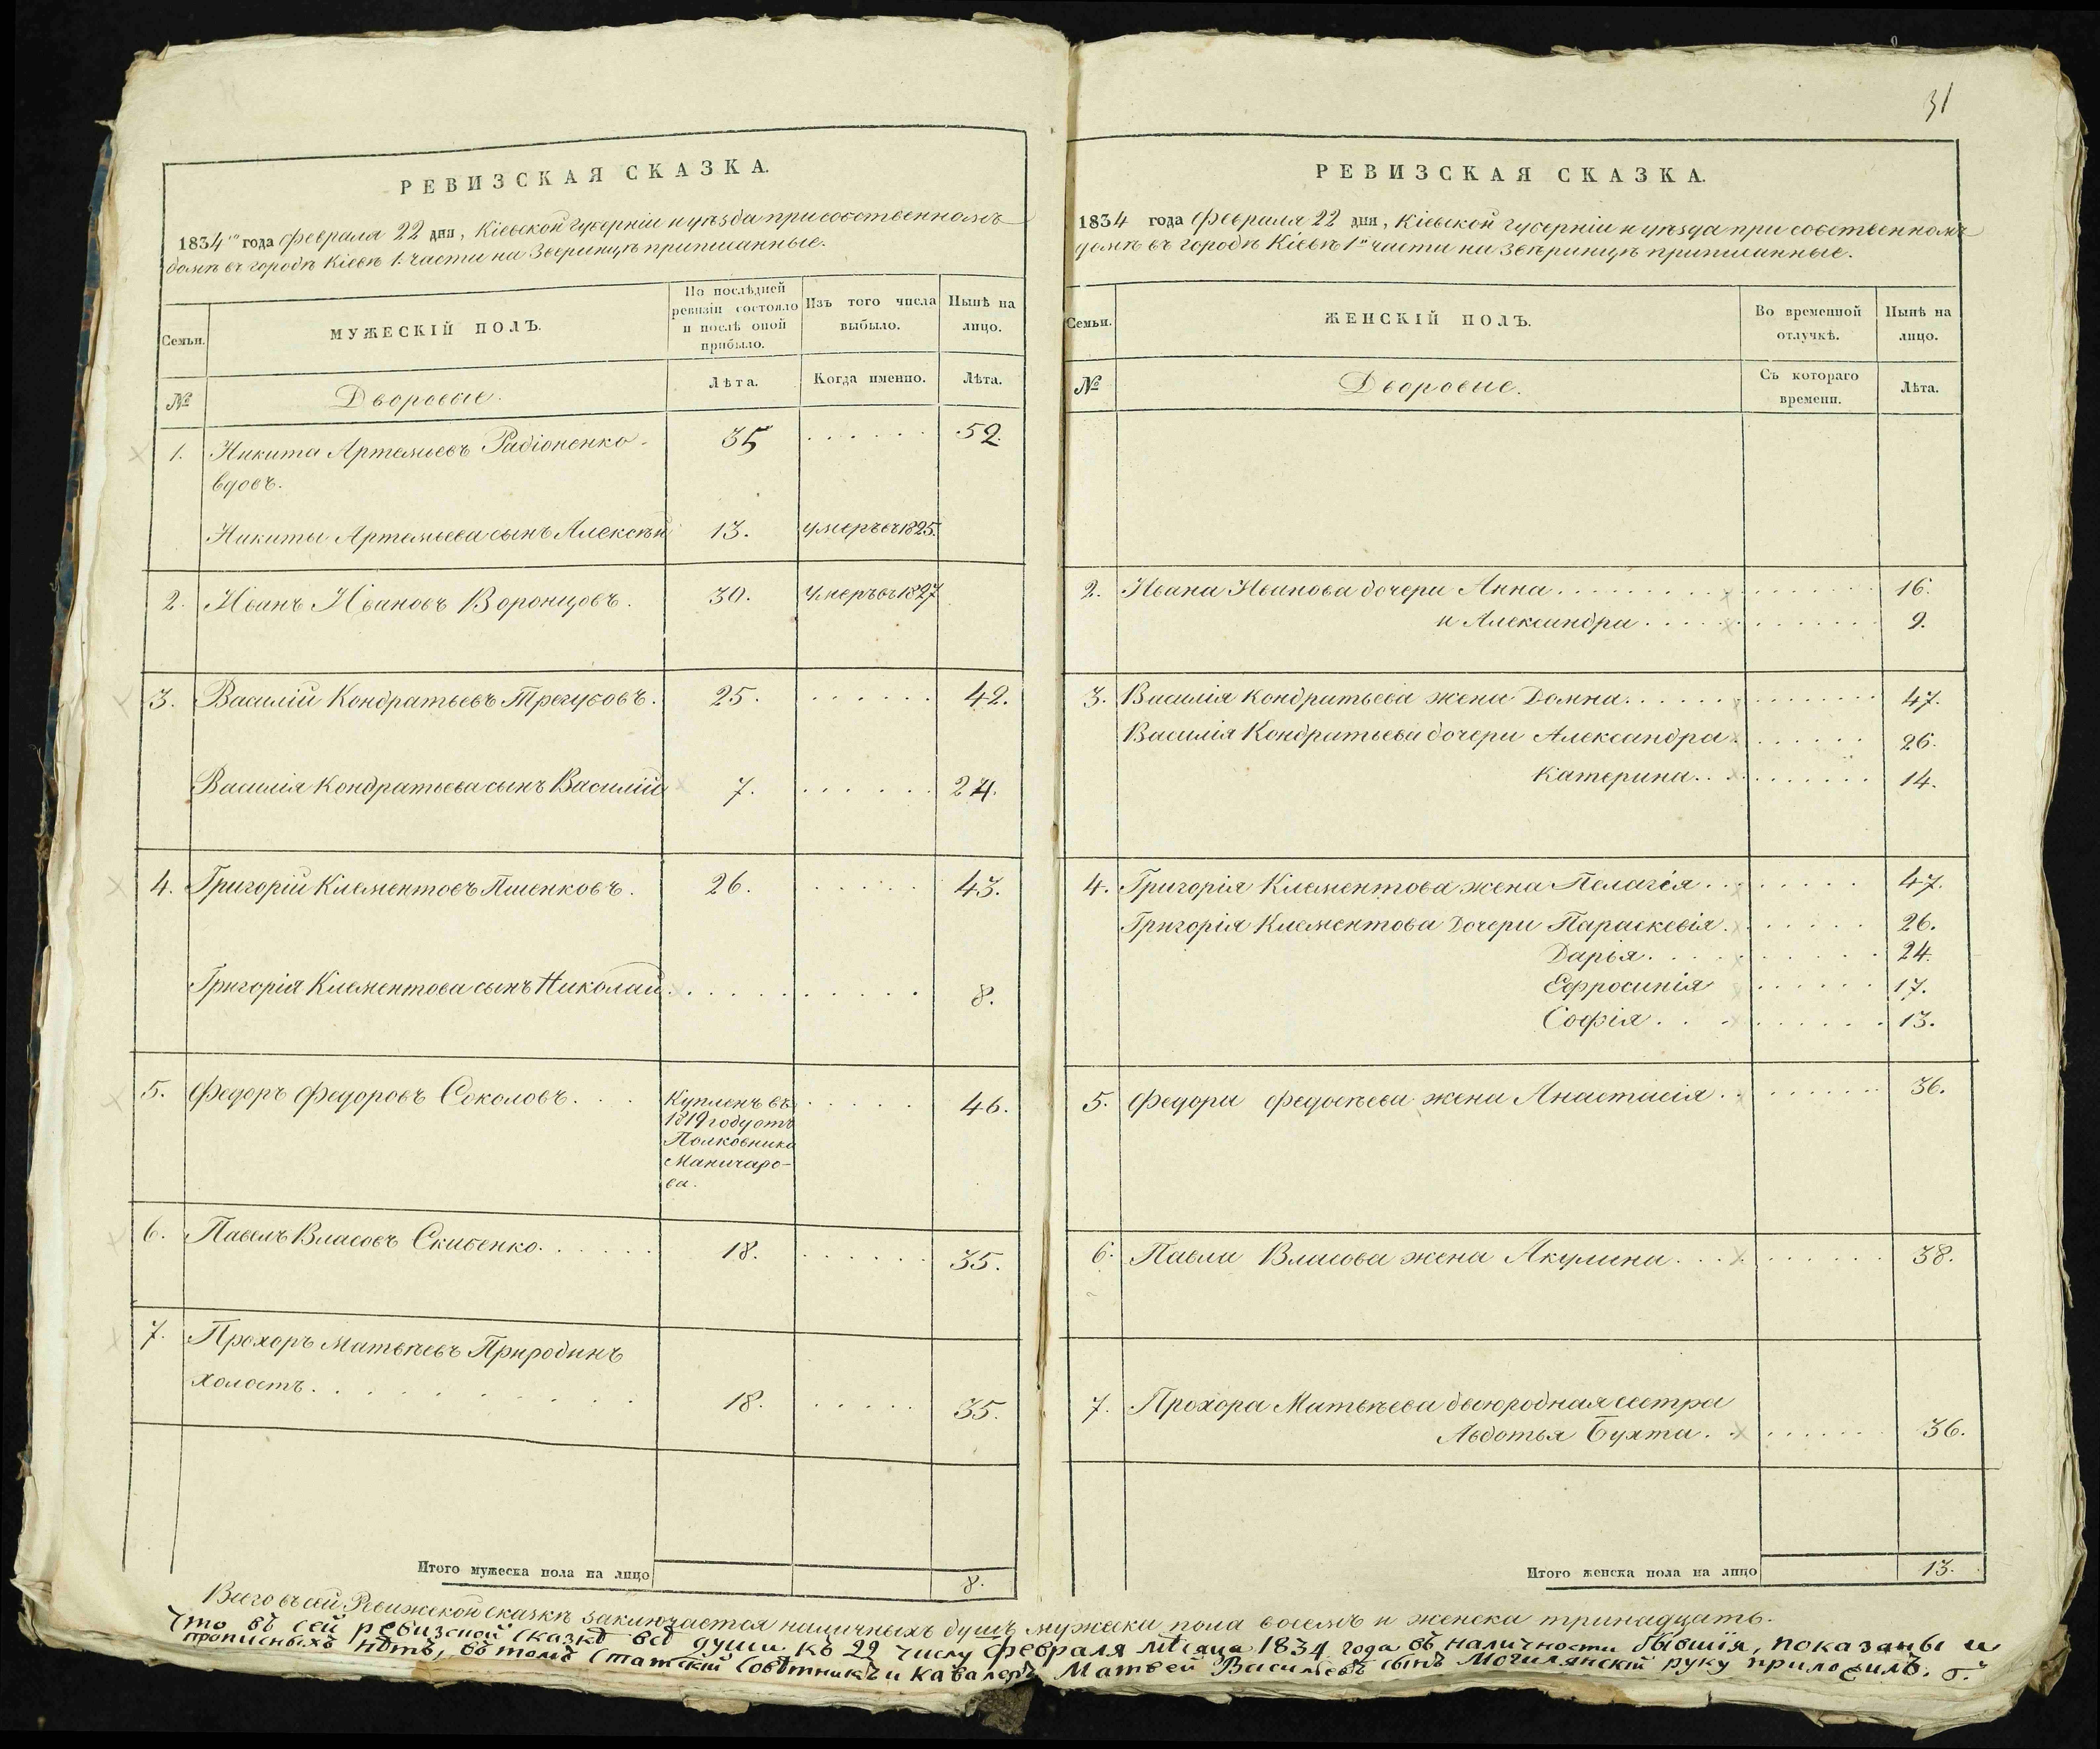 РЕВИЗСКАЯ СКАЗКА.
1834го года Февраля 22 дня, Кіевской губерніи и уѣзда при собственномъ
домѣ въ городѣ Кіевѣ 1. части на Звѣринцѣ приписанные.
Семьи.
МУЖЕСКІЙ ПОЛЪ.
По послѣдней ревизіи состояло и послѣ оной прибыло.
Изъ того числа выбыло.
Нынѣ на лицо.
№
Дворовые.
Лѣта.
Когда именно.
Лѣта.
1. Никита Артемьевъ Радіоненко 35 52.
вдовъ.
Никиты Артемьева сынъ Алексѣй 13. умеръ въ 1825.
2. Иванъ Ивановъ Воронцовъ. 30. Умеръ въ 1827
3. Василій Кондратьевъ Трегубовъ. 25. 42.
Василія Кондратьева сынъ Василій 7. 24.
4. Григорій Клементовъ Пшенковъ. 26. 43.
Григорія Клементова сынъ Николай 8.
5. Федоръ Федоровъ Соколовъ. Купленъ въ 46.
1819 году отъ
Полковника
Маничаро-
ва.
6. Павелъ Власовъ Скибенко. 18. 35.
7. Прохоръ Матвѣевъ Природинъ
холостъ. 18. 35.
Итого мужеска пола на лицо 8.
31
РЕВИЗСКАЯ СКАЗКА.
1834 года Февраля 22 дня, Кіевской губерніи и уѣзда при собственномъ
домѣ въ городѣ Кіевѣ 1й части на Звѣринцѣ приписанные.
Семьи.
ЖЕНСКІЙ ПОЛЪ.
Во временной отлучкѣ.
Нынѣ на лицо.
№
Дворовые.
Съ котораго времени.
Лѣта.
2. Ивана Иванова дочери Анна 16.
и Александра 9.
3. Василія Кондратьева жена Домна. 47.
Василія Кондратьева дочери Александра 26.
Катерина. 14.
4. Григорія Клементова жена Пелагея. 47.
Григорія Клементова дочери Параскевія. 26.
Дарья. 24.
Ефросинія 17.
Софія. 13.
5. Федора Федосѣева жена Анастасія. 36.
6. Павла Власова жена Акулина. 38.
7. Прохора Матвѣева двоюродная сестра
Авдотья Бухта. 36.
Итого женска пола на лицо 13.
Всего въ сей Ревижской сказкѣ заключается наличныхъ душъ мужеска пола восемь и женска тринадцать.
Что въ сей ревизской сказкѣ всѣ души къ 22 числу Февраля мѣсяца 1834 года въ наличности бывшія, показаны и
прописныхъ нѣтъ, въ томъ Статскій Совѣтникъ и Кавалеръ Матвей Васильевъ сынъ Могилянскій руку приложилъ.